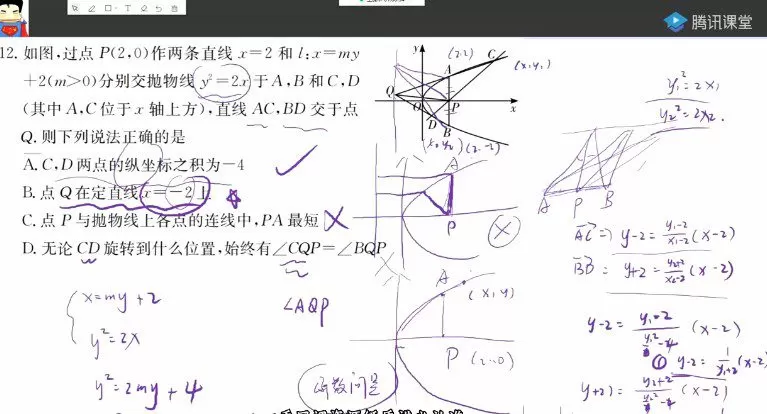 腾讯课堂
12. 如图,过点 P(2,0)作两条直线 x=2 和 l:x=my
+2(m>0)分别交抛物线 y²=2x 于 A,B 和 C,D
(其中 A,C 位于 x 轴上方),直线 AC,BD 交于点
Q. 则下列说法正确的是
A. C,D 两点的纵坐标之积为-4
B. 点 Q 在定直线 x=-2 上
C. 点 P 与抛物线上各点的连线中,PA 最短
D. 无论 CD 旋转到什么位置,始终有∠CQP=∠BQP
y
(2,2)
C
(x₁y₁)
A
Q
O
P
x
D
B
(x₂y₂)
(2,-2)
y₁²=2x₁
y₂²=2x₂.
A
P
A P B
AC⇒ y-2=y₁-2/x₁-2(x-2)
BD= y+2=y₂+2/x₂-2(x-2)
x=my+2
y²=2x
y²=2my+4
∠AQP
A
(x,y)
P (2,0)
函数问题
y-2=y₁-2/y₁²/2-4(x-2)
① y-2=1/y₁+2(x-2)
y+2)=y₂+2/y₂²-4(x-2)